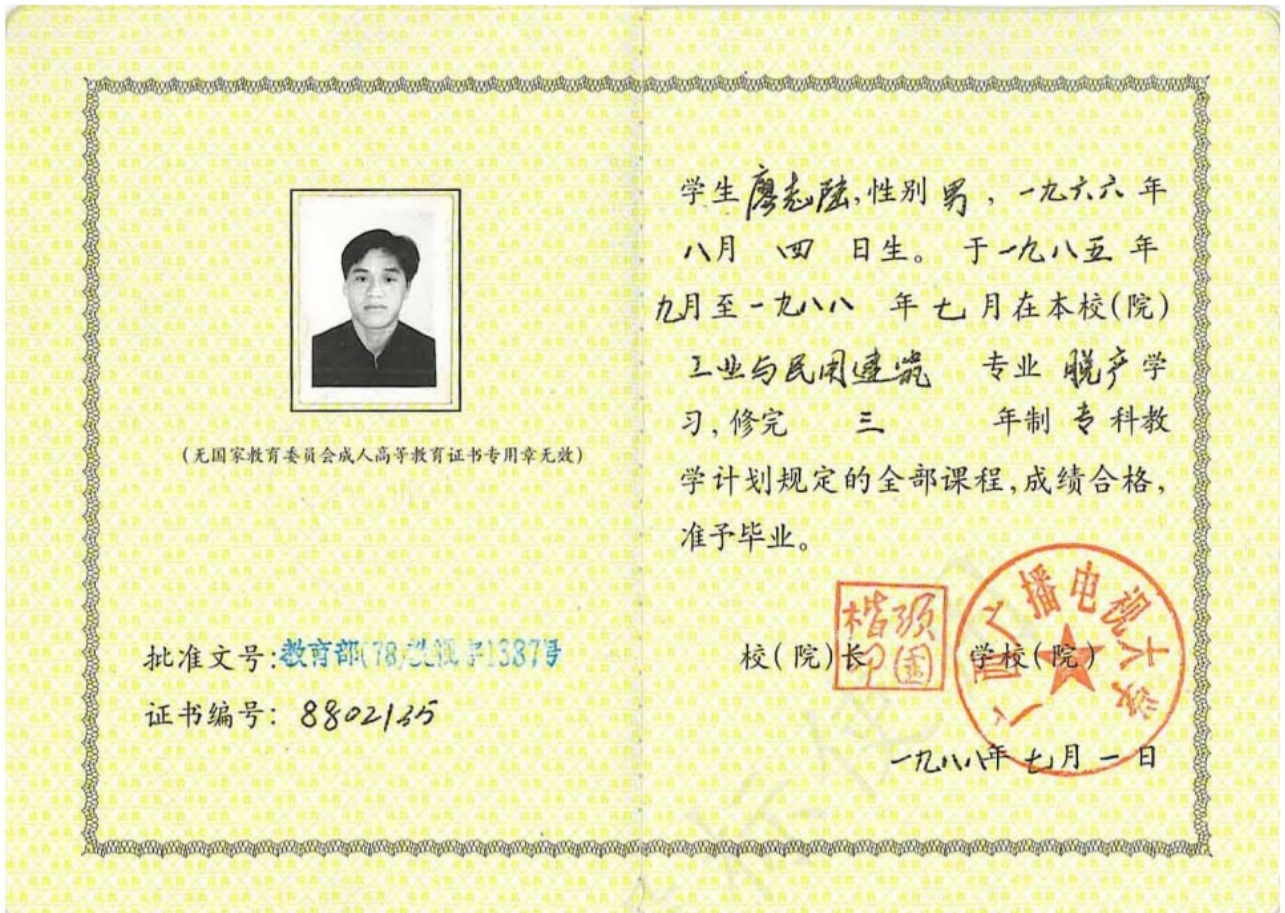 (无国家教育委员会成人高等教育证书专用章无效)
批准文号:教育部(78) 1387号
证书编号: 8802135
学生廖志陆,性别 男 , 一九六六 年
八月 四 日生。 于一九八五 年
九月至一九八八 年 七 月在本校(院)
工业与民用建筑 专业 脱产学
习,修完 三 年制 专 科教
学计划规定的全部课程,成绩合格,
准予毕业。
校(院)长 学校(院)
广西广播电视大学
一九八八年 七月 一 日